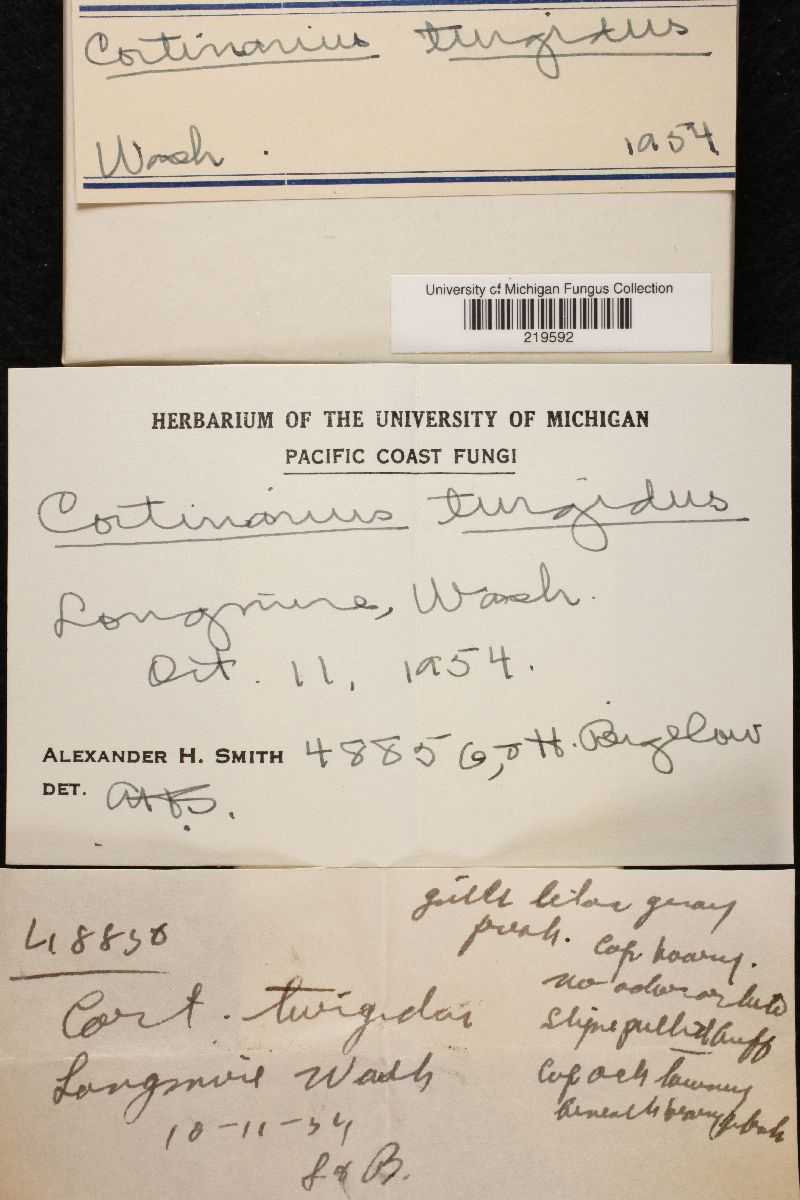 Cortinarius turgidus
Wash. 1954
University of Michigan Fungus Collection
219592
HERBARIUM OF THE UNIVERSITY OF MICHIGAN
PACIFIC COAST FUNGI
Cortinarius turgidus
Longmire, Wash.
Oct. 11, 1954.
ALEXANDER H. SMITH 48856, H. Bigelow
DET. AHS.
48856
Cort. turgidus
Longmire Wash
10-11-54
S & B.
gills lilac gray
fresh.
Cap hoary.
no odor or taste
Stipe pallid buff
Cap och tawny
beneath hoary